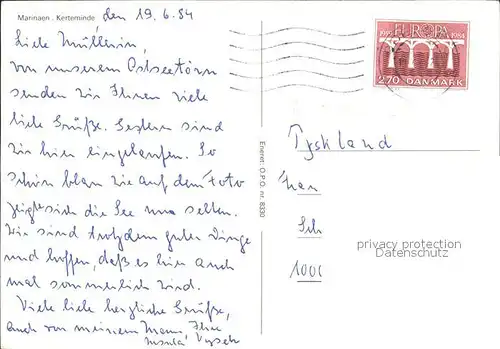 Marinaen . Kerteminde
den 19.6.84
Liebe Müllerin,
von unserem Ostseetörn
senden wir Ihnen viele
liebe Grüße. Gestern sind
wir hier eingelaufen. So
schön blau wie auf dem Foto
zeigte sich die See nur selten.
Wir sind trotzdem guter Dinge
und hoffen, daß es hier auch
mal sommerlich wird.
Viele liebe herzliche Grüße,
auch von meinem Mann, Ihre
Eneret: O.P.O. nr. 8330
1959 EUROPA 1984
2.70 DANMARK
Tyskland
Frau
Sch
1000
privacy protection
Datenschutz